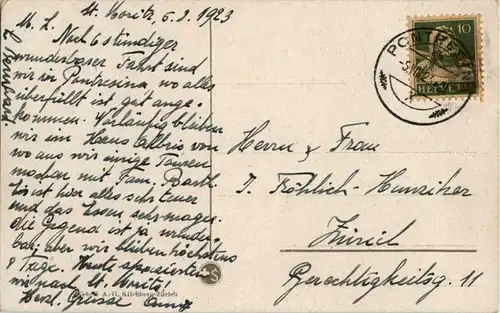 St. Moritz, 6.8.1923
M. L.
Nach 6 stündiger
wunderbarer Fahrt sind
wir in Pontresina wo alles
überfüllt ist gut ange-
kommen. Vorläufig bleiben
wir im Haus Albris von
wo aus wir einige Touren
machen mit Fam.
Es ist hier alles sehr teuer
und das Essen sehr mager.
die Gegend ist ja wunder-
bar; aber wir bleiben höchstens
8 Tage. Heute spazierten
wir nach St. Moritz!
Herzl. Grüsse
10
HELVETIA
Herrn & Frau
J. Fröhlich-Hunziker
Zürich
Gerechtigkeitsg. 11
A.-G. Kilchberg-Zürich